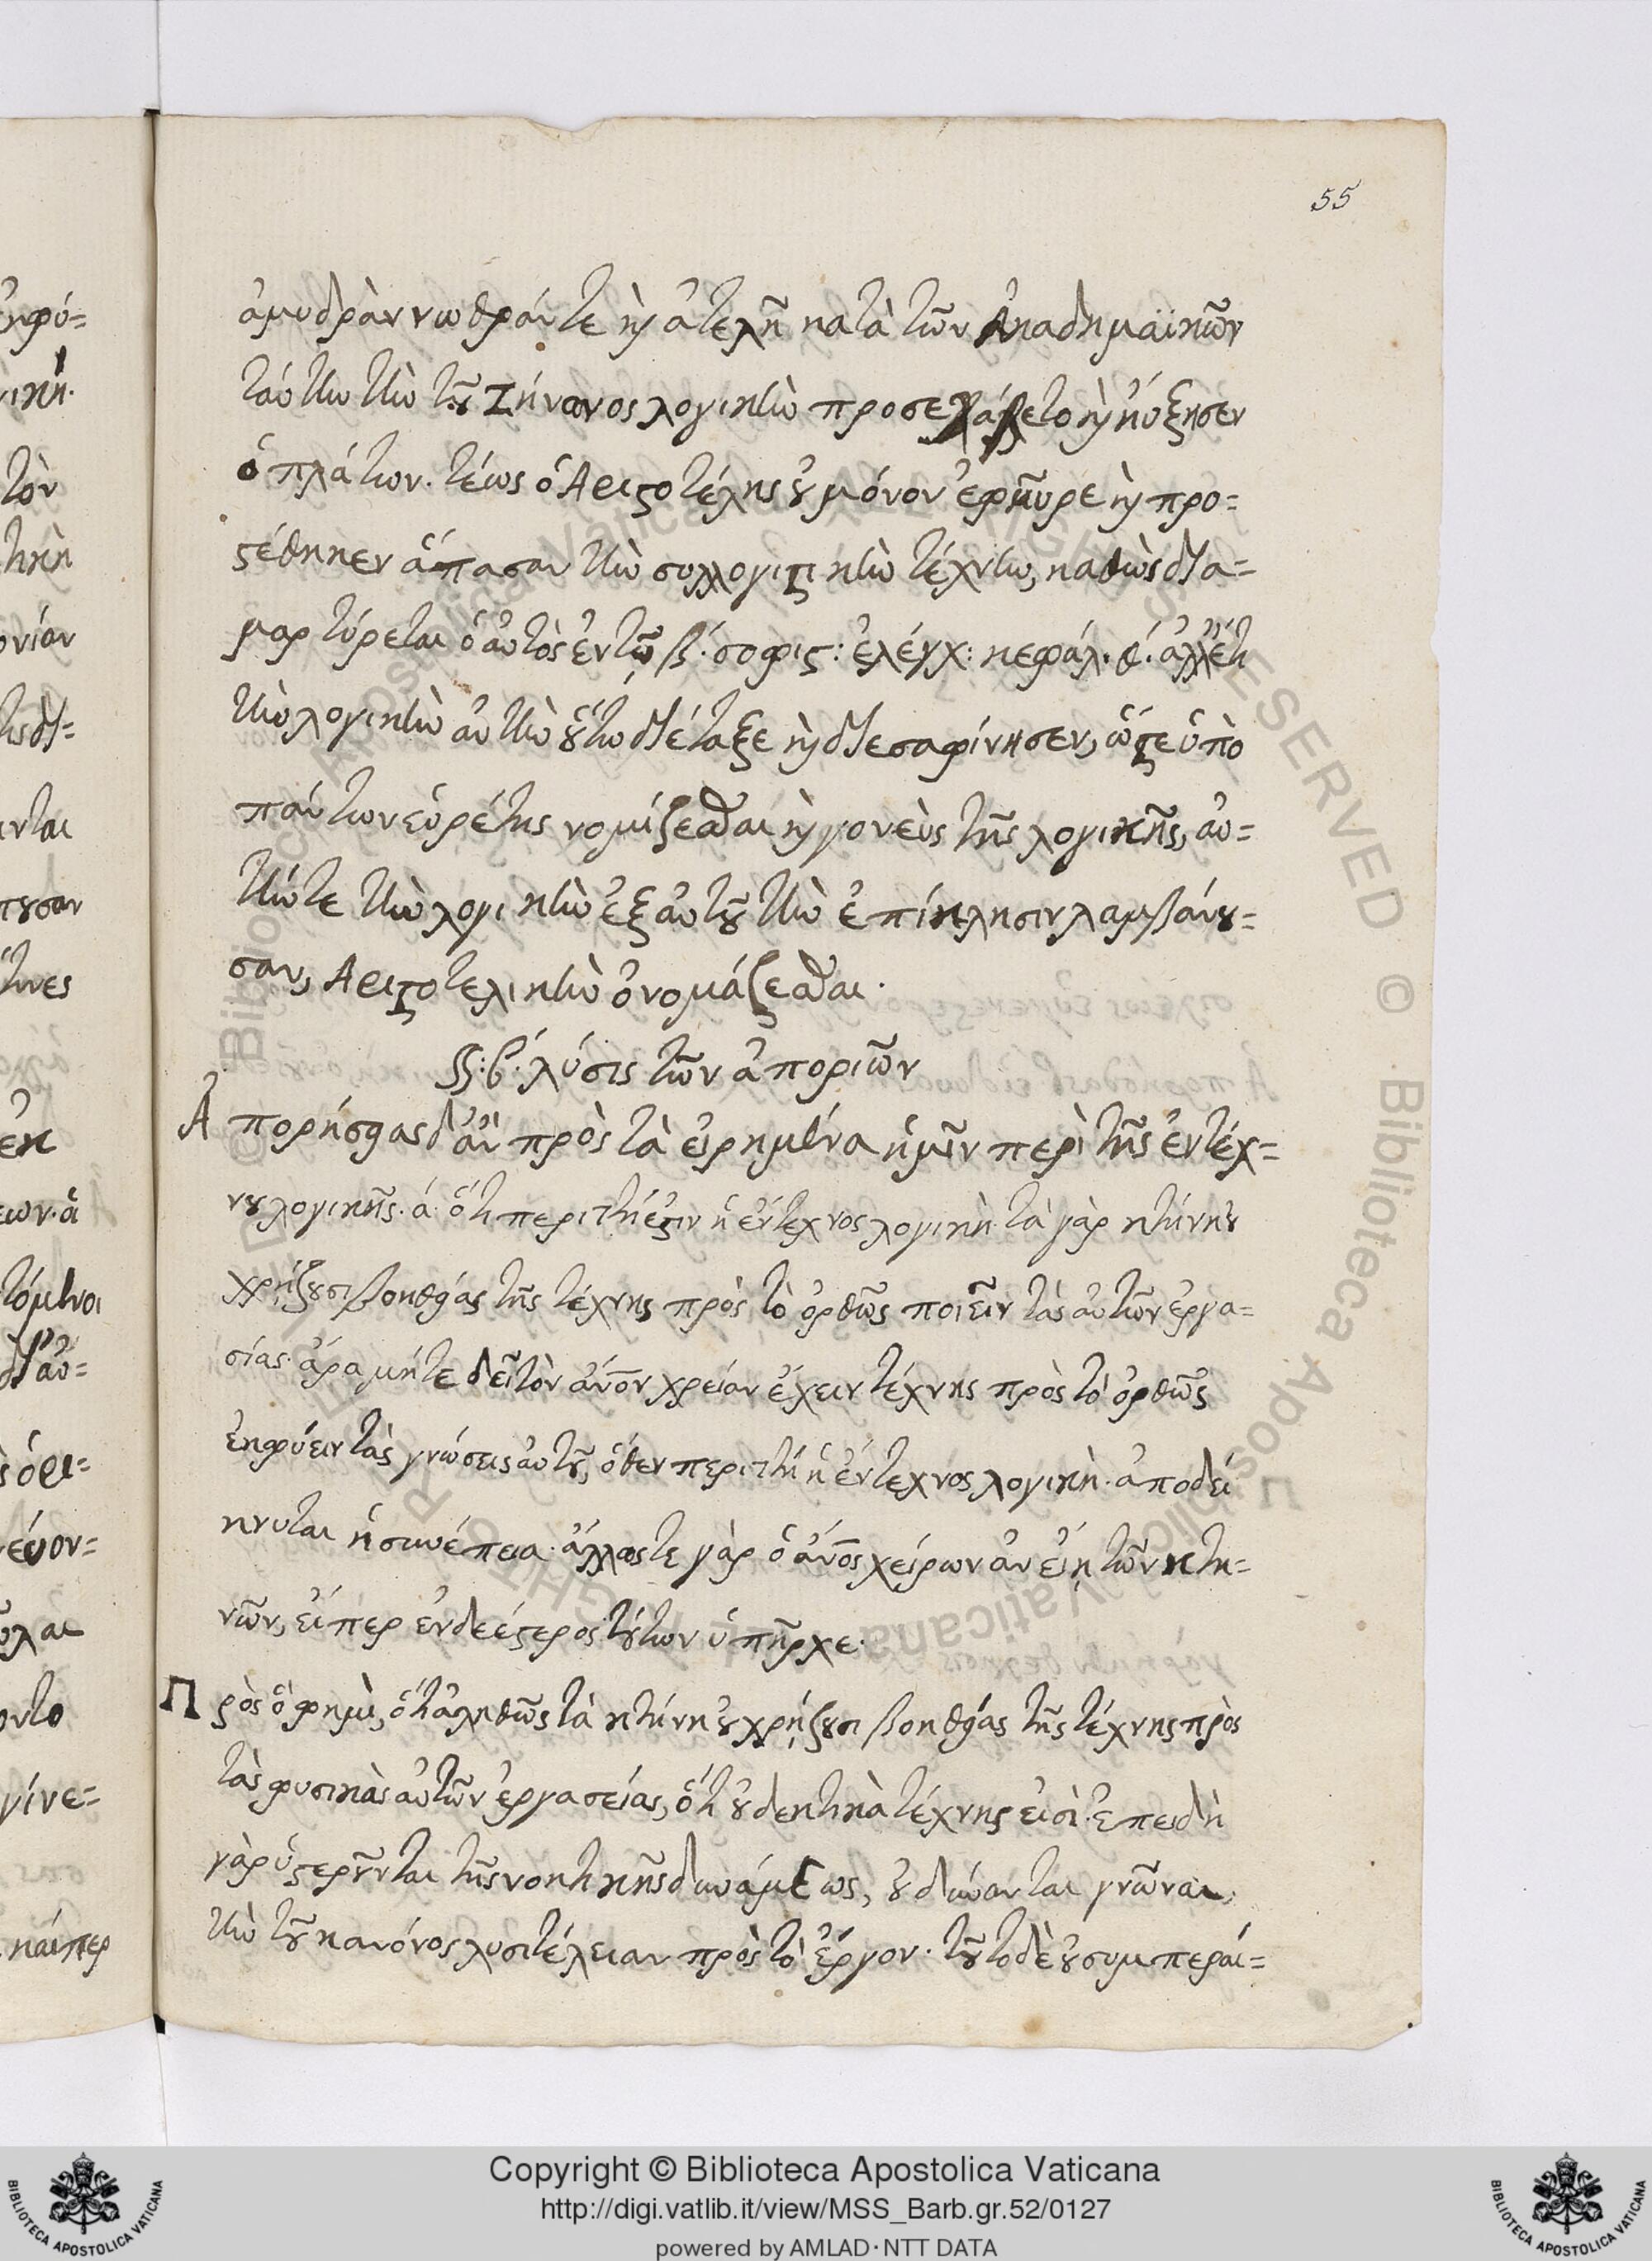 55
ἀμυδρὰν νωθράν τε καὶ ἀτελῆ κατὰ τῶν Ἀκαδημαϊκῶν
ταύτην τὴν τοῦ Ζήνωνος λογικὴν προσελάβετο καὶ ηὔξησεν
ὁ πλάτων. τέως ὁ Ἀριστοτέλης οὐ μόνον ἐφηῦρε καὶ προ=
σέθηκεν ἅπασαν τὴν συλλογιστικὴν τέχνην, καθὼς δια=
μαρτύρεται ὁ αὐτὸς ἐν τῷ β. σοφις: ἐλέγχ: κεφάλ. θ. ἀλλ' ἔτι
τὴν λογικὴν αὐτὴν οὕτω διέταξε καὶ διεσαφήνησεν, ὥστε ὑπὸ
πάντων εὑρέτης νομίζεσθαι καὶ γονεὺς τῆς λογικῆς, αὐ=
τήν τε τὴν λογικὴν ἐξ αὐτοῦ τὴν ἐπίκλησιν λαμβάνου=
σαν, Ἀριστοτελικὴν ὀνομάζεσθαι.
β. λύσις τῶν ἀποριῶν
Ἀπορήσειας δ' ἂν πρὸς τὰ εἰρημένα ἡμῖν περὶ τῆς ἐντέχ=
νου λογικῆς. ά. ὅτι περιττή ἐστιν ἡ ἔντεχνος λογική. τὰ γὰρ κτήνη οὐ
χρῄζουσι βοηθείας τῆς τέχνης πρὸς τὸ ὀρθῶς ποιεῖν τὰς αὐτῶν ἐργα=
σίας. ἄρα μήτε δεῖ τὸν ἄνον χρείαν ἔχειν τέχνης πρὸς τὸ ὀρθῶς
ἐκφύειν τὰς γνώσεις αὐτοῦ, ὅθεν περιττὴ ἡ ἔντεχνος λογική. ἀποδεί
κνυται ἡ συνέπεια. ἄλλοστε γὰρ ὁ ἄνος χείρων ἂν εἴη τῶν κτη=
νῶν, εἴπερ ἐνδεέστερος τούτων ὑπῆρχε.
Πρὸς ὅ φημὶ, ὅτι ἀληθῶς τὰ κτήνη οὐ χρῄζουσι βοηθείας τῆς τέχνης πρὸς
τὰς φυσικὰς αὐτῶν ἐργασείας, ὅτι οὐ δεκτικὰ τέχνης εἰσί. ἐπειδὴ
γὰρ ὑστεροῦνται τῆς νοητικῆς δυνάμεως, οὐ δύνανται γνῶναι
τὴν τοῦ κανόνος λυσιτέλειαν πρὸς τὸ ἔργον. τοῦτο δὲ οὐ συμπεραί=